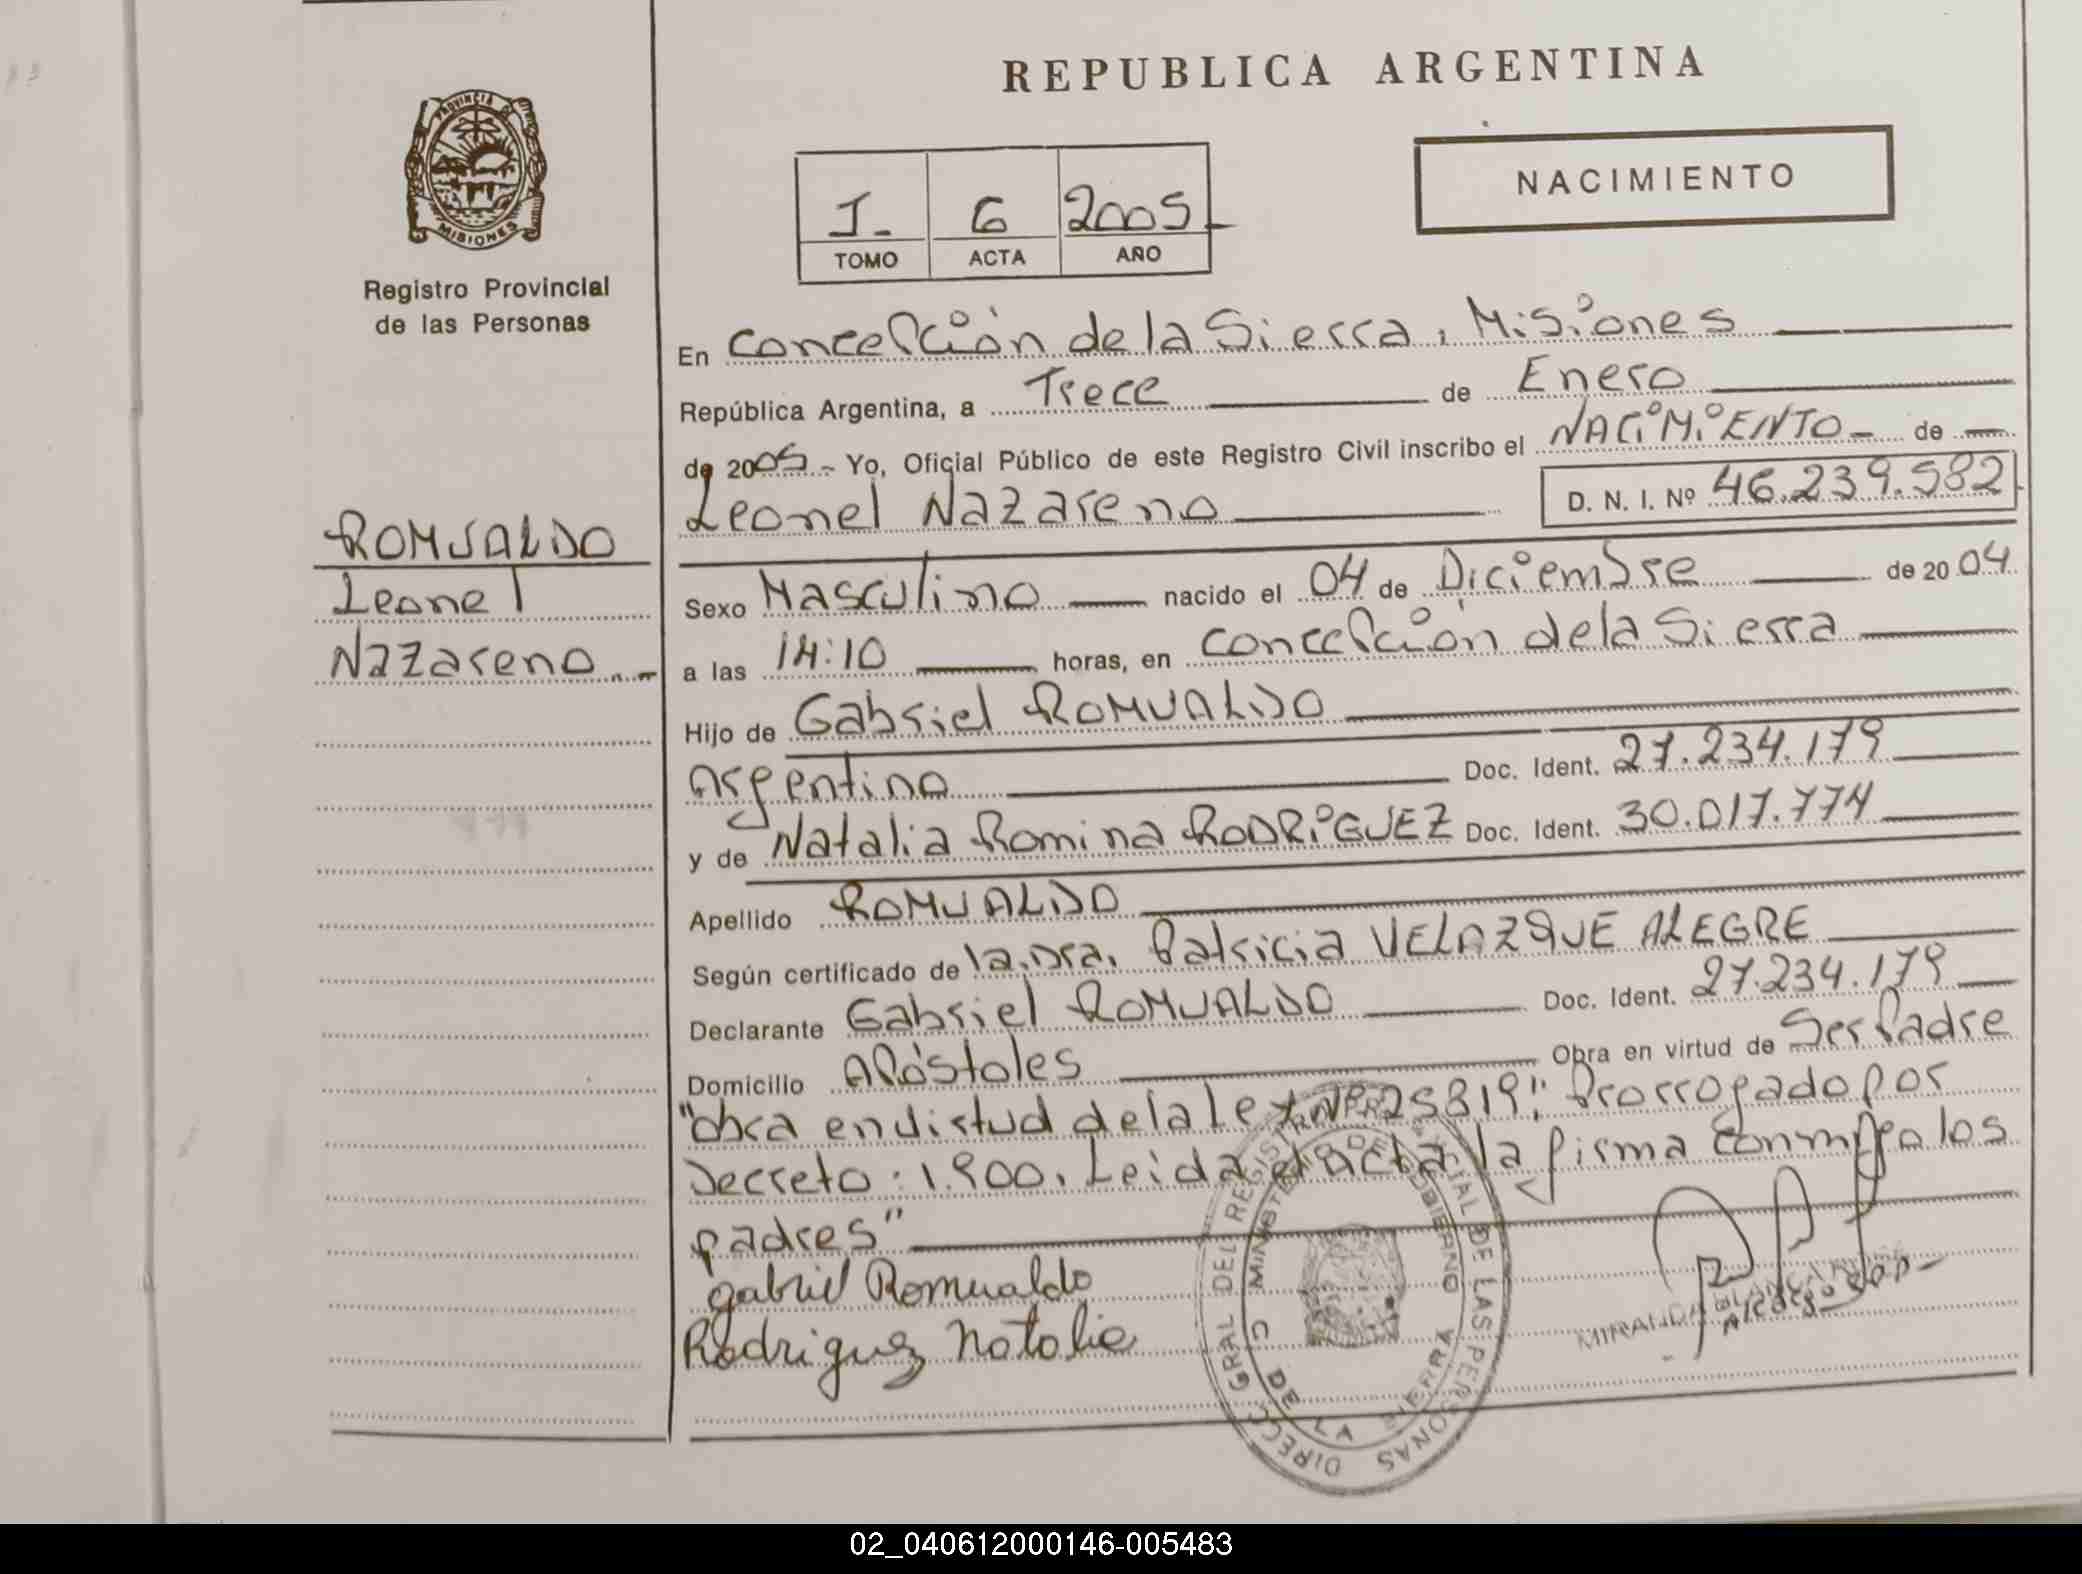 REPUBLICA ARGENTINA
PROVINCIA DE
MISIONES
Registro Provincial
de las Personas
I-
6
2005
TOMO
ACTA
AÑO
NACIMIENTO
En Concepción de la Sierra, Misiones
República Argentina, a Trece de Enero
de 2005.- Yo, Oficial Público de este Registro Civil inscribo el NACIMIENTO de
Leonel Nazareno
D. N. I. Nº 46.239.582
ROMUALDO
Leonel
Nazareno
Sexo Masculino nacido el 04 de Diciembre de 2004
a las 14:10 horas, en Concepción de la Sierra
Hijo de Gabriel ROMUALDO
Argentino Doc. Ident. 27.234.179
y de Natalia Romina RODRIGUEZ Doc. Ident. 30.017.774
Apellido ROMUALDO
Según certificado de la.Dra. Patricia VELAZQUE ALEGRE
Declarante Gabriel ROMUALDO Doc. Ident. 27.234.179
Domicilio Apóstoles Obra en virtud de Ser Padre
"Obra en virtud de la Ley Nº 25819" Prorrogado por
Decreto: 1.900. Leida el acta la firma conmigo los
padres"
gabriel Romualdo
Rodriguez Natalia
DIRECC. GRAL DEL REGISTRO PROVINCIAL DE LAS PERSONAS
MINISTERIO DE GOBIERNO
C. DE LA SIERRA
MIRANDA
02_040612000146-005483